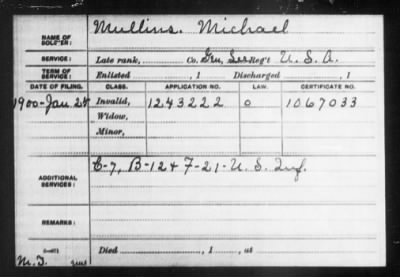 NAME OF SOLDIER: Mullins. Michael
SERVICE: Late rank, Co. Gen. Ser Reg't U. S. A.
TERM OF SERVICE: Enlisted , 1 Discharged , 1
DATE OF FILING. CLASS. APPLICATION NO. LAW. CERTIFICATE NO.
1900-Jan. Invalid, 1243222 0 1067033
Widow,
Minor,
ADDITIONAL SERVICES: C-7, B-12 & F-21-U. S. Inf.
REMARKS:
Died , 1 , at